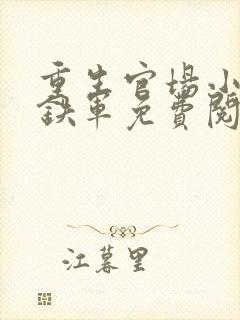 重生官场小
铁军免费阅
江暮里